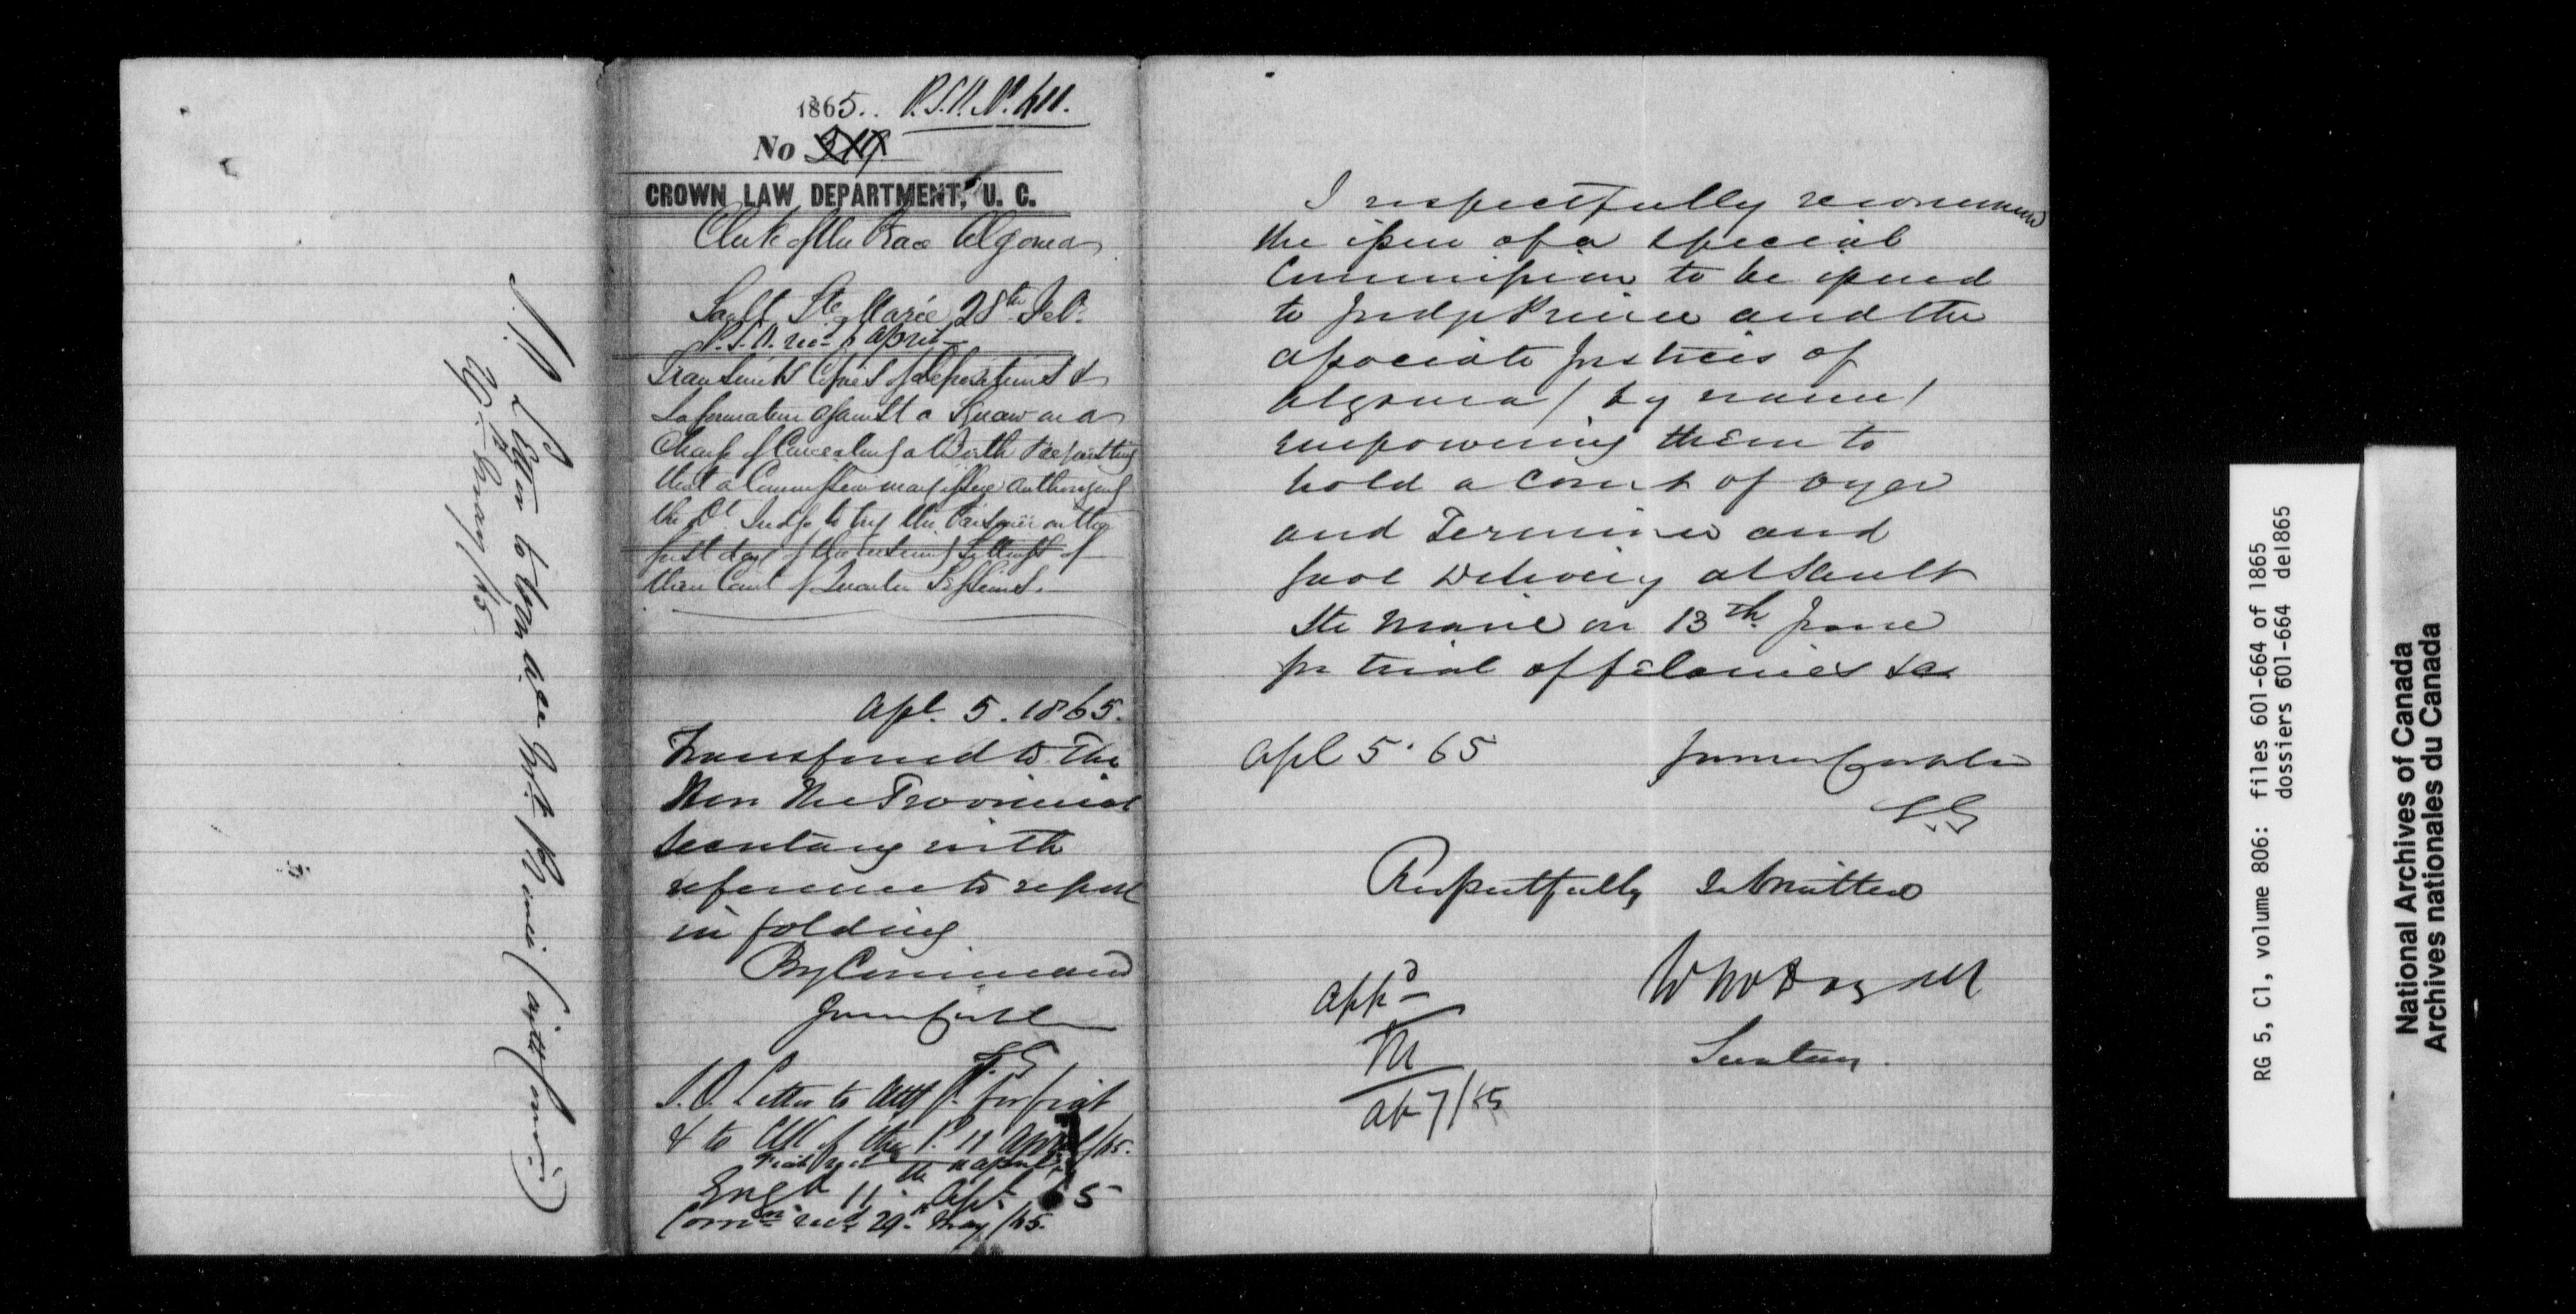 S.O. Letter to Hon. Col. Prince (with Comn:)
29th May /65
1865.. P.S.O. No. 611.
No 319
CROWN LAW DEPARTMENT, U. C.
Clerk of the Peace Algoma
Sault Ste Marie 28th Feb.
P.S.O. rec'd 6 April
Transmits Copies of Depositions &
Information against a Squaw on a
Charge of Concealing a Birth requesting
that a Commission may issue authorizing
the Dt. Judge to try the Prisoner on the
first day of the ensuing Sittings of
their Court of Quarter Sessions.
Apl. 5. 1865.
Transferred to The
Hon The Provincial
Secretary with
reference to report
in folding
By Command
James Cockburn
S.G
S.O. Letter to Atty G. for fiat
& to Clk of the P. 11 April /65.
Fiat rec'd 11 April
Engd 11th Apl. 65
Comn recd 29th May /65.
I respectfully recommend
the issue of a special
Commission to be issued
to Judge Prince and the
associate justices of
Algoma / by name /
empowering them to
hold a Court of Oyer
and Terminer and
Gaol Delivery at Sault
Ste Marie on 13th June
for trial of felonies &c
Apl 5. 65 James Cockburn
S.G
Respectfully Submitted
Appd
M
Ap 7/65
Secretary.
RG 5, C1, volume 806: files 601-664 of 1865
dossiers 601-664 de1865
National Archives of Canada
Archives nationales du Canada